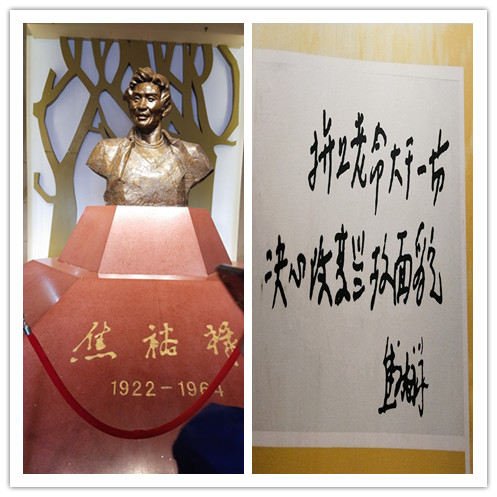 焦裕禄
1922-1964
拼上老命大干一场
决心改变兰考面貌
焦裕禄